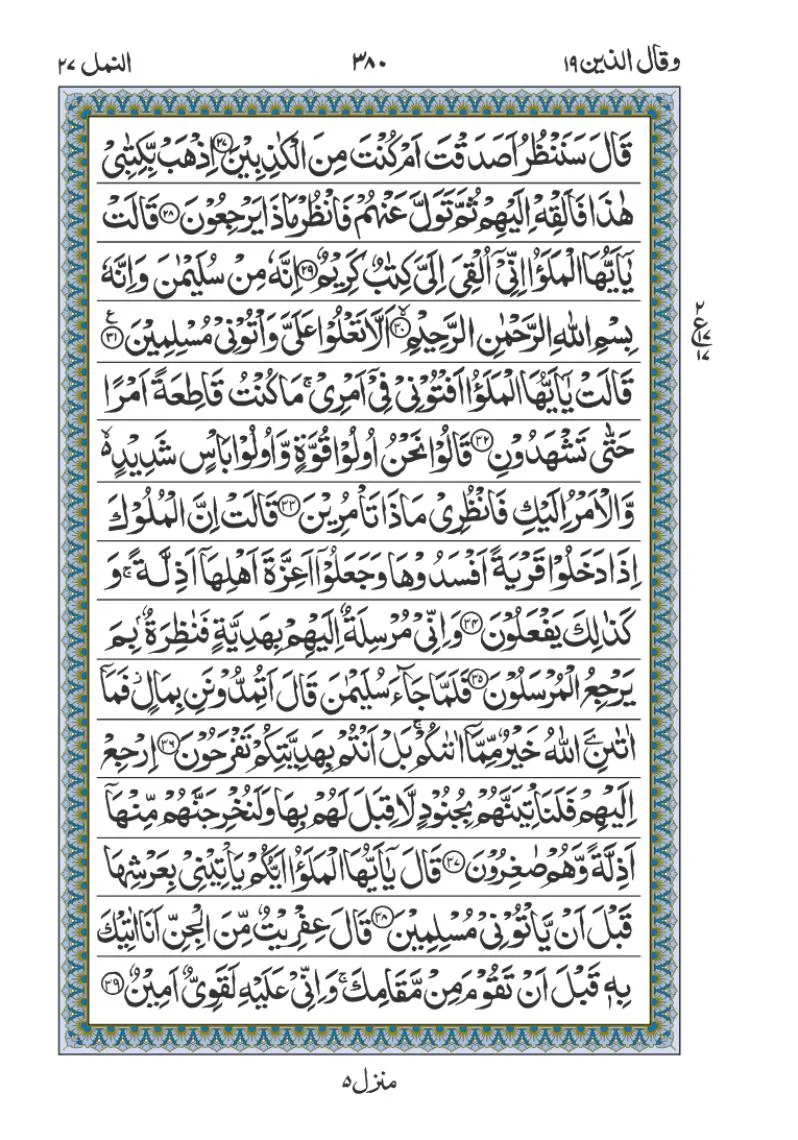 وقال الذین ۱۹
۳۸۰
النمل ۲۷
قَالَ سَنَنْظُرُ اَصَدَقْتَ اَمْ كُنْتَ مِنَ الْكٰذِبِیْنَ ﴿۲۷﴾ اِذْهَبْ بِّكِتٰبِیْ
هٰذَا فَاَلْقِهْ اِلَیْهِمْ ثُمَّ تَوَلَّ عَنْهُمْ فَانْظُرْ مَاذَا یَرْجِعُوْنَ ﴿۲۸﴾ قَالَتْ
یٰۤاَیُّهَا الْمَلَؤُا اِنِّیْۤ اُلْقِیَ اِلَیَّ كِتٰبٌ كَرِیْمٌ ﴿۲۹﴾ اِنَّهٗ مِنْ سُلَیْمٰنَ وَاِنَّهٗ
بِسْمِ اللّٰهِ الرَّحْمٰنِ الرَّحِیْمِ ﴿۳۰﴾ۙ اَلَّا تَعْلُوْا عَلَیَّ وَاْتُوْنِیْ مُسْلِمِیْنَ ﴿۳۱﴾ ع
۲
ع ۱۷
۱۷
قَالَتْ یٰۤاَیُّهَا الْمَلَؤُا اَفْتُوْنِیْ فِیْۤ اَمْرِیْ ۚ مَا كُنْتُ قَاطِعَةً اَمْرًا
حَتّٰی تَشْهَدُوْنِ ﴿۳۲﴾ قَالُوْا نَحْنُ اُولُوْا قُوَّةٍ وَّاُولُوْا بَاْسٍ شَدِیْدٍ ۙ۬
وَّالْاَمْرُ اِلَیْكِ فَانْظُرِیْ مَاذَا تَاْمُرِیْنَ ﴿۳۳﴾ قَالَتْ اِنَّ الْمُلُوْكَ
اِذَا دَخَلُوْا قَرْیَةً اَفْسَدُوْهَا وَجَعَلُوْۤا اَعِزَّةَ اَهْلِهَاۤ اَذِلَّةً ۚ وَ
كَذٰلِكَ یَفْعَلُوْنَ ﴿۳۴﴾ وَاِنِّیْ مُرْسِلَةٌ اِلَیْهِمْ بِهَدِیَّةٍ فَنٰظِرَةٌۢ بِمَ
یَرْجِعُ الْمُرْسَلُوْنَ ﴿۳۵﴾ فَلَمَّا جَآءَ سُلَیْمٰنَ قَالَ اَتُمِدُّوْنَنِ بِمَالٍ ز فَمَاۤ
اٰتٰىنَِۧ اللّٰهُ خَیْرٌ مِّمَّاۤ اٰتٰىكُمْ ۚ بَلْ اَنْتُمْ بِهَدِیَّتِكُمْ تَفْرَحُوْنَ ﴿۳۶﴾ اِرْجِعْ
اِلَیْهِمْ فَلَنَاْتِیَنَّهُمْ بِجُنُوْدٍ لَّا قِبَلَ لَهُمْ بِهَا وَلَنُخْرِجَنَّهُمْ مِّنْهَاۤ
اَذِلَّةً وَّهُمْ صٰغِرُوْنَ ﴿۳۷﴾ قَالَ یٰۤاَیُّهَا الْمَلَؤُا اَیُّكُمْ یَاْتِیْنِیْ بِعَرْشِهَا
قَبْلَ اَنْ یَّاْتُوْنِیْ مُسْلِمِیْنَ ﴿۳۸﴾ قَالَ عِفْرِیْتٌ مِّنَ الْجِنِّ اَنَا اٰتِیْكَ
بِهٖ قَبْلَ اَنْ تَقُوْمَ مِنْ مَّقَامِكَ ۚ وَاِنِّیْ عَلَیْهِ لَقَوِیٌّ اَمِیْنٌ ﴿۳۹﴾
منزل ۵